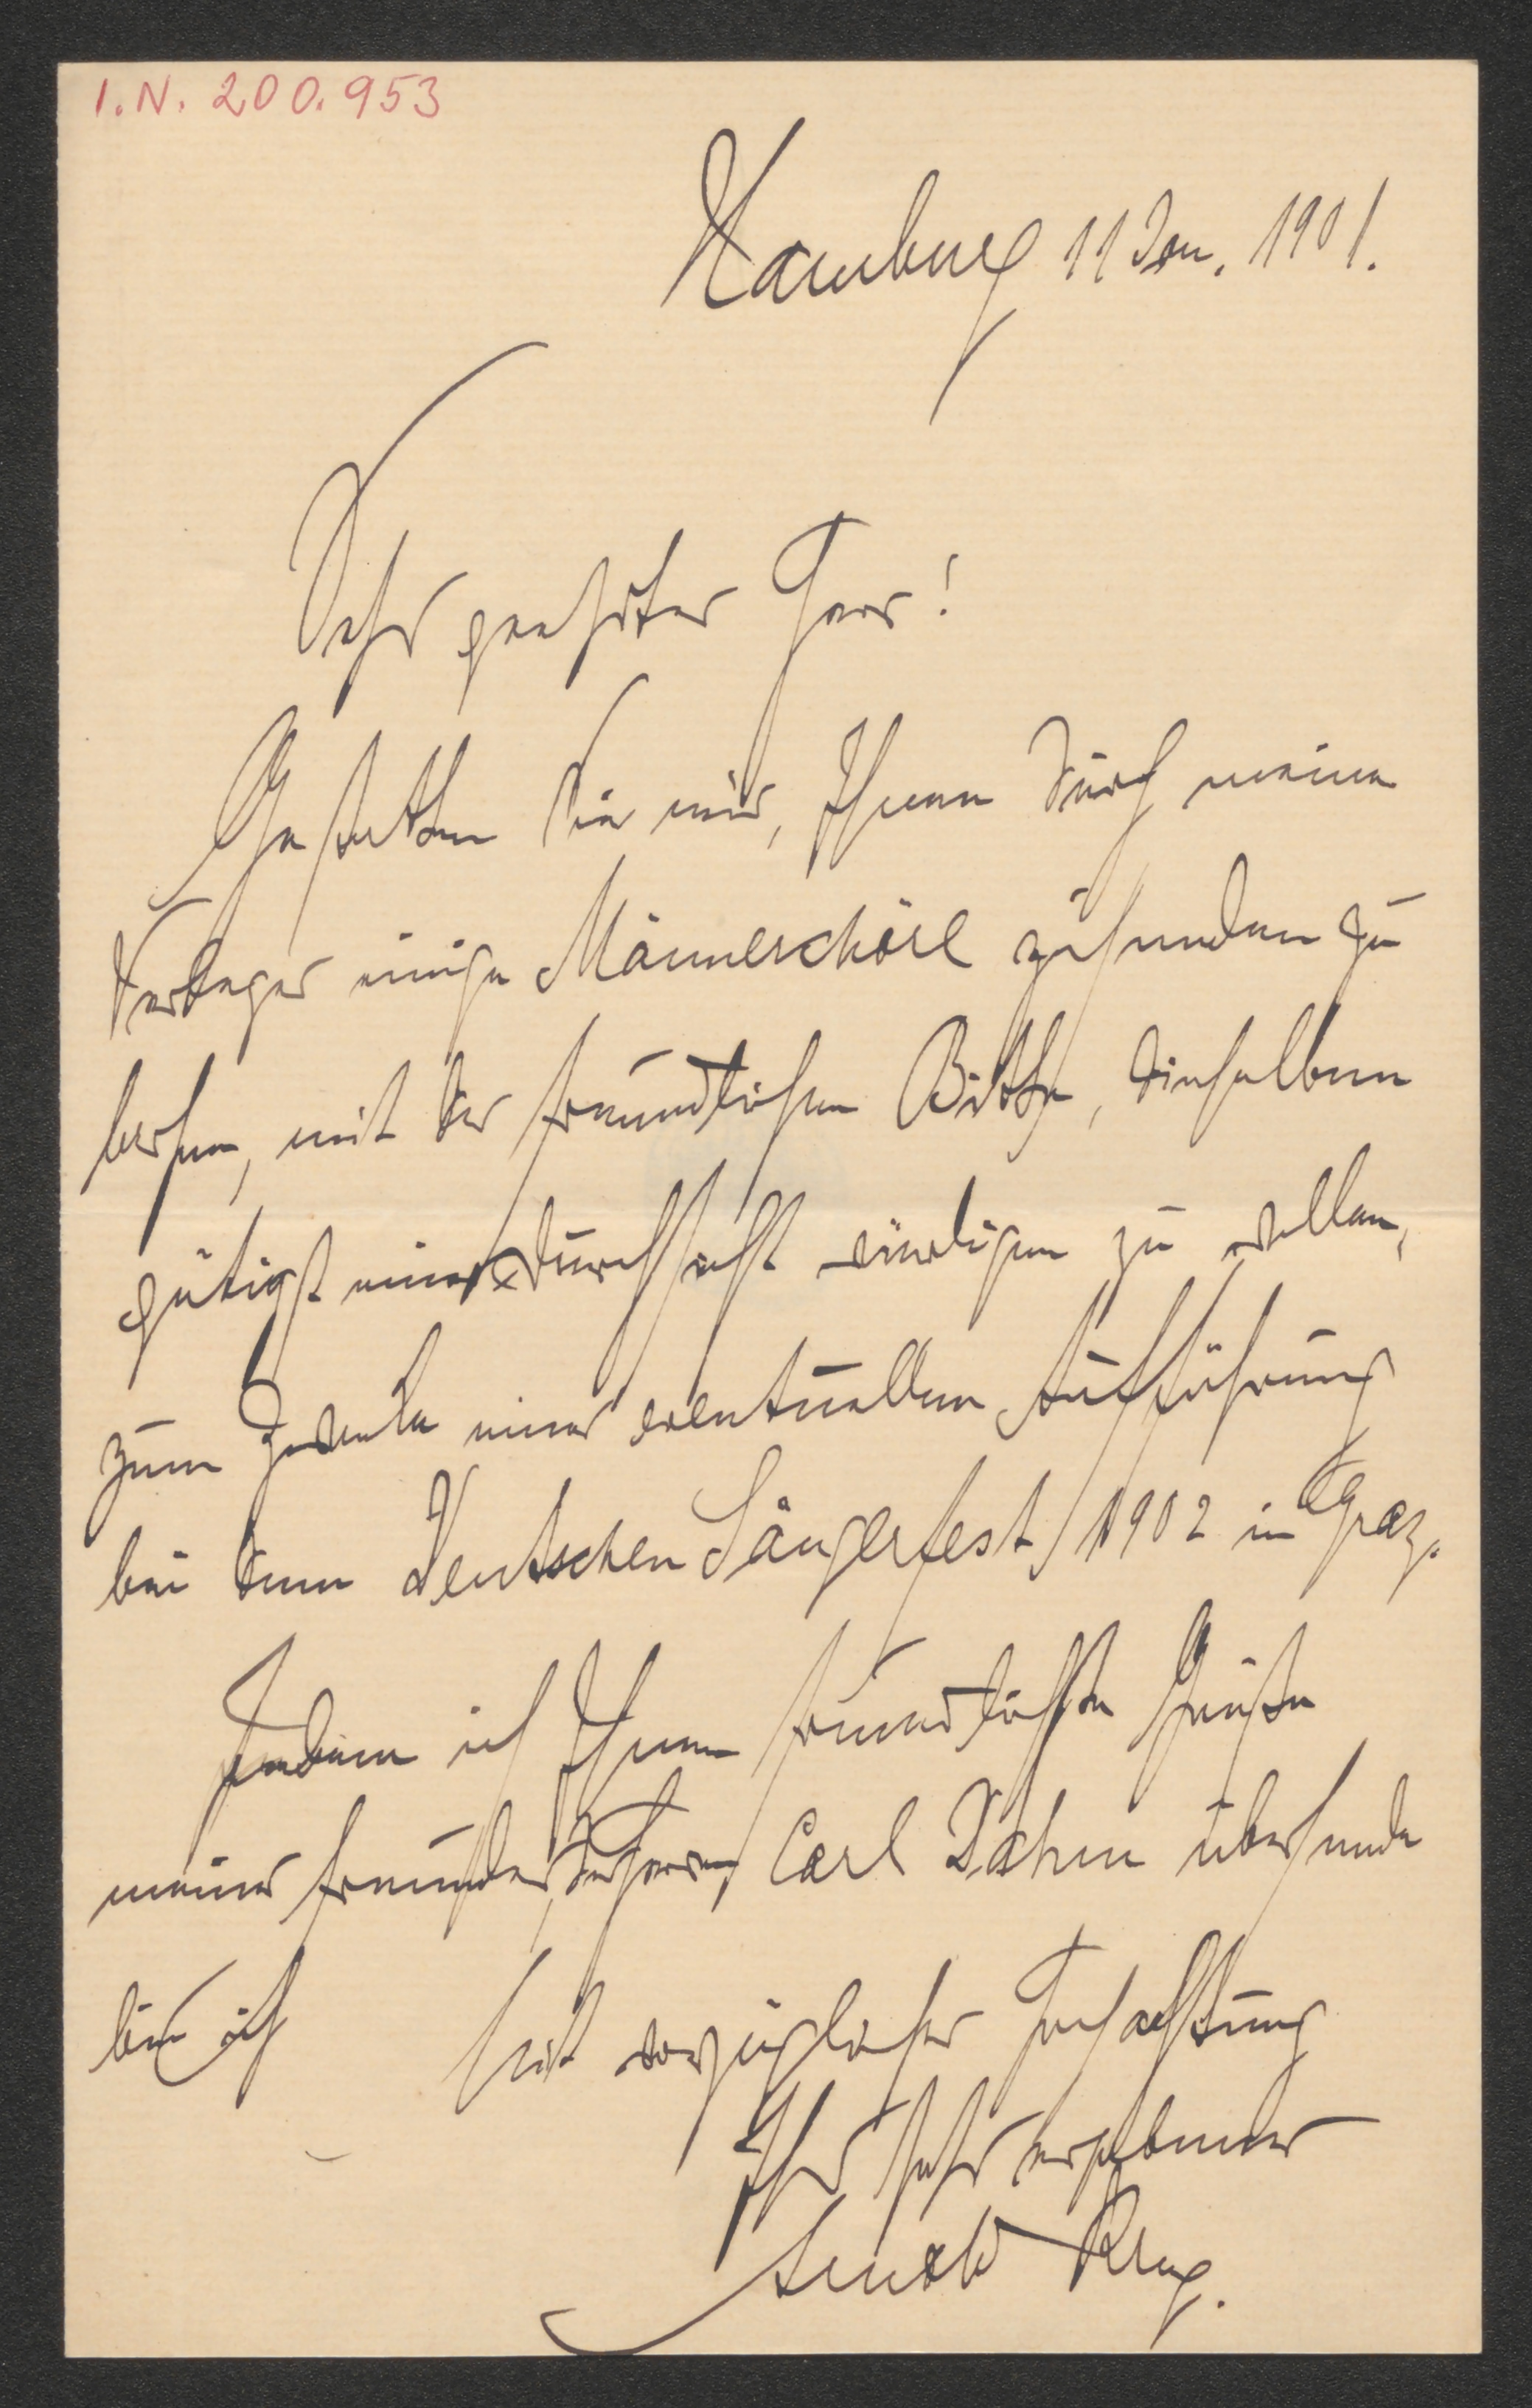 I.N. 200.953
Hamburg 11 Jan. 1901.
Sehr geehrter Herr!
Gestatten Sie mir, Ihnen durch meine
Verleger einige Männerchöre zusenden zu
lassen, mit der freundlichen Bitte, dieselben
gütigst einer Durchsicht würdigen zu wollen,
zum Zwecke einer eventuellen Aufführung
bei dem Deutschen Sängerfest 1902 in Graz.
Indem ich Ihnen freundlichste Grüße
meines Freundes, Carl Dahm übersende
bin ich Mit vorzüglicher Hochachtung
Ihr sehr ergebener
Arnold Krug.